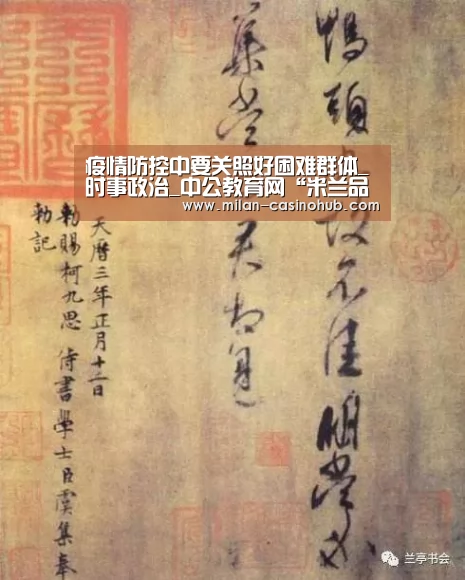 疫情防控中要关照好困难群体_
时事政治_中公教育网“米兰品
www.milan-casinohub.com
鴨頭故不佳明當必
集當君相見
天曆三年正月十二日
勅賜柯九思侍書學士臣虞集奉
勅記
兰亭书会